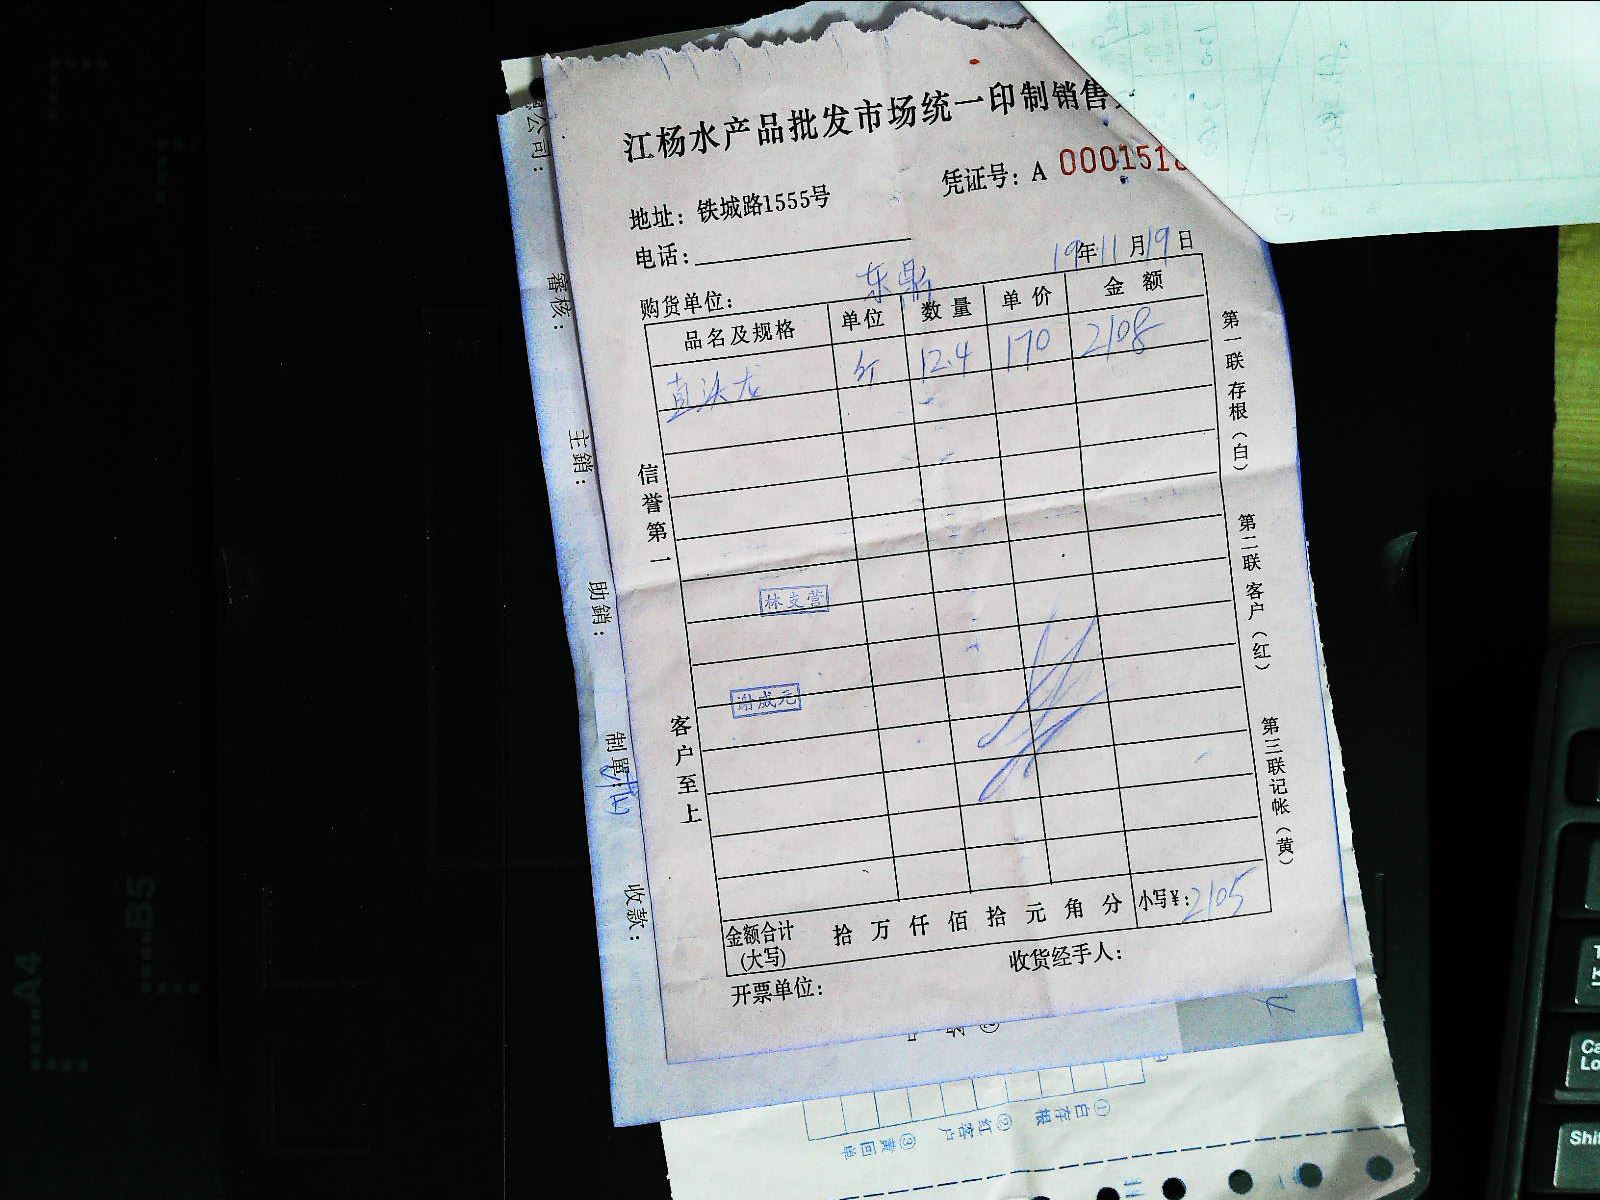 江杨水产品批发市场统一印制销售
凭证号：A 0001518
地址：铁城路1555号
电话：
19年11月19日
购货单位： 东鼎
品名及规格 单位 数量 单价 金额
直沃龙 斤 12.4 170 2108
信誉第一
客户至上
林支营
谢威元
第一联 存根（白）
第二联 客户（红）
第三联 记帐（黄）
金额合计（大写） 拾 万 仟 佰 拾 元 角 分 小写¥：2105
开票单位： 收货经手人：
公司：
審核：
主銷：
助銷：
制單：
收款：
①白存根 ②红客户 ③黄回单
A4
B5